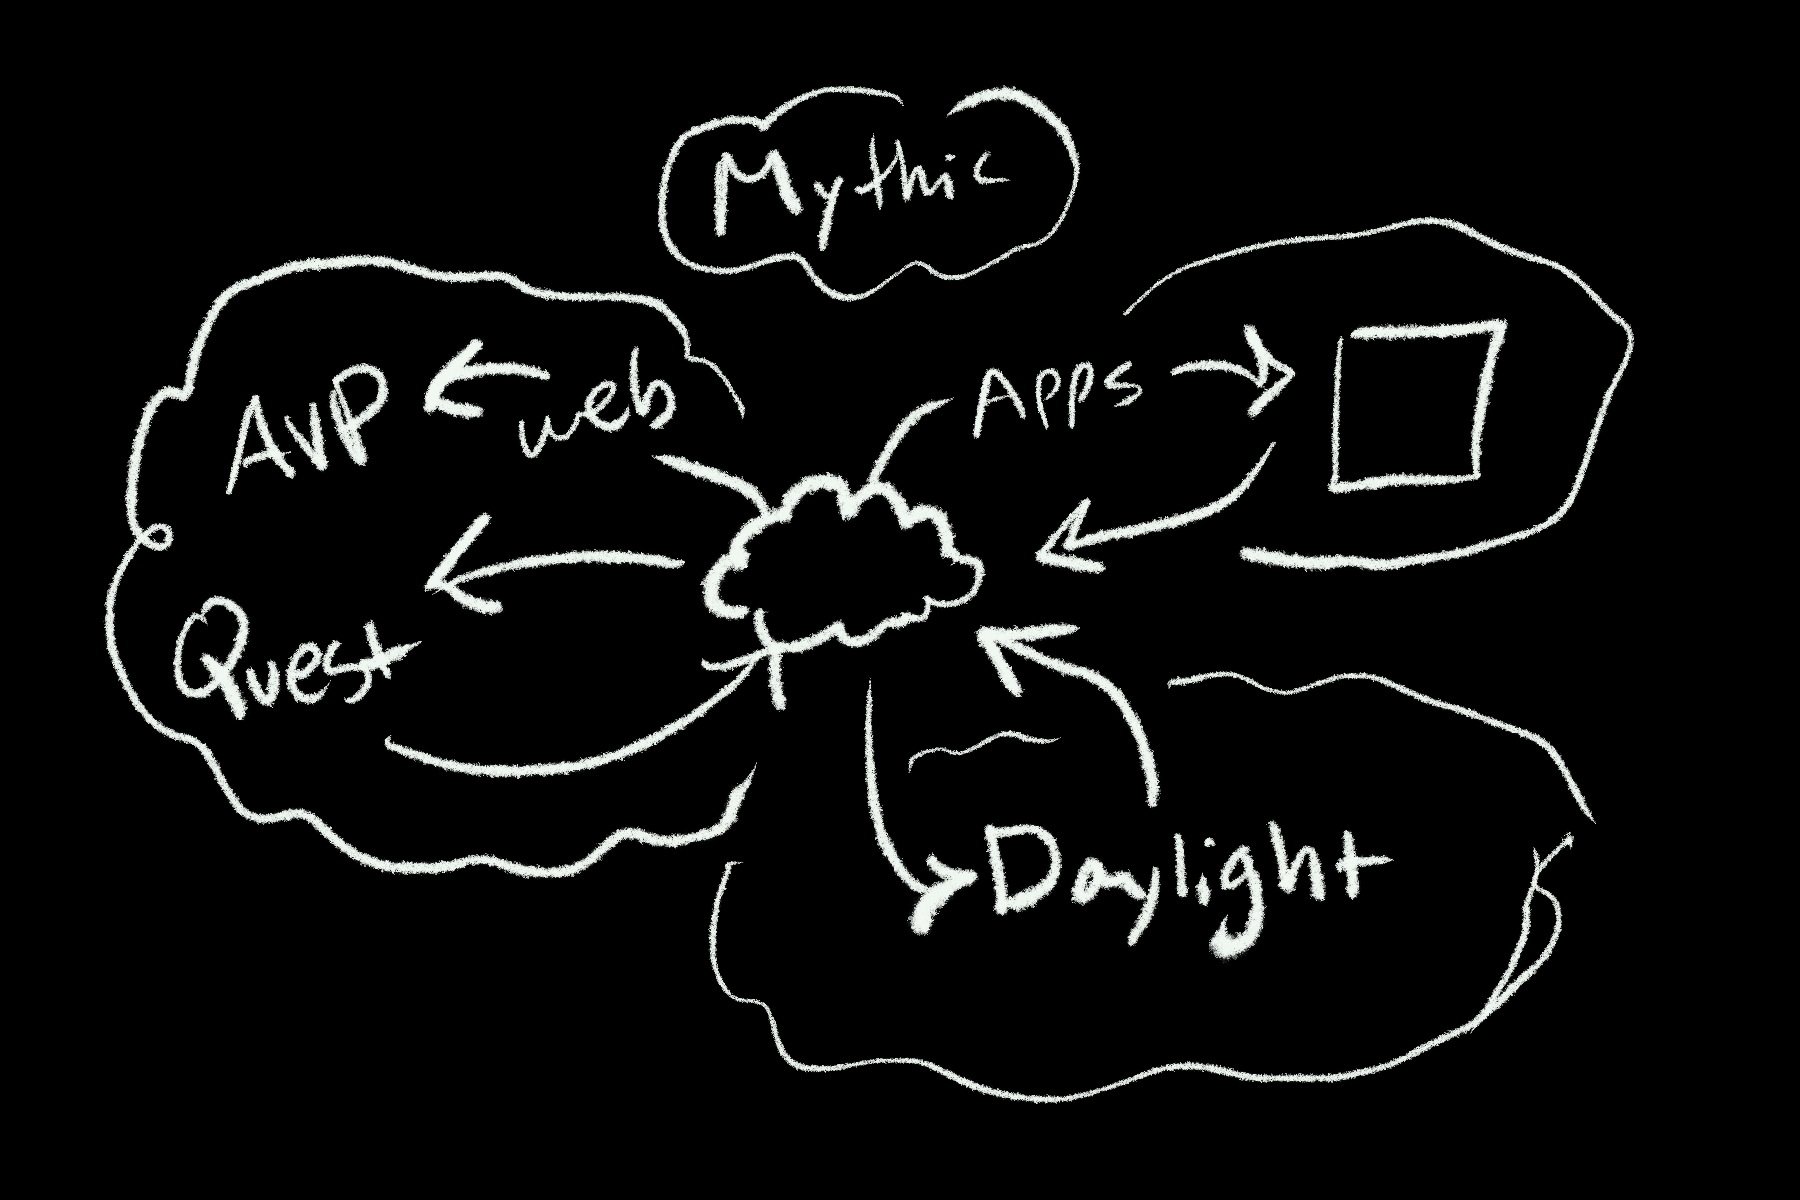 Mythic
AVP
web
Apps
Quest
Daylight